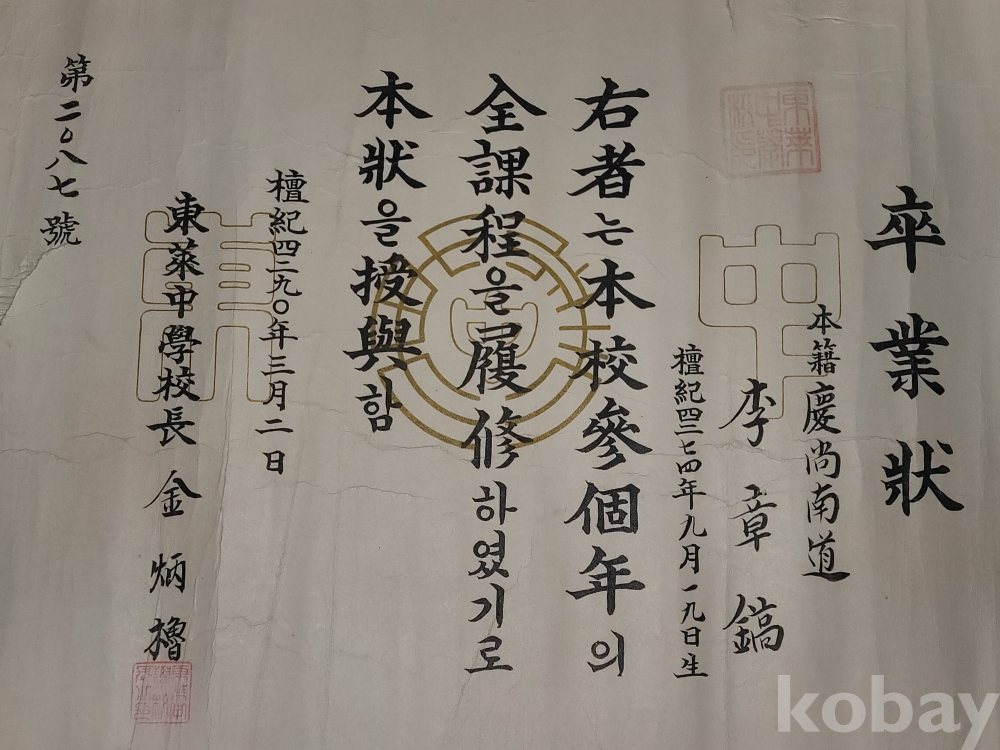 卒業狀
本籍慶尚南道
李章鎬
檀紀四二七四年九月一九日生
右者는本校參個年의
全課程을履修하였기로
本狀을授與함
檀紀四二九〇年三月二日
東萊中學校長 金炳櫓
第二〇八七號
kobay